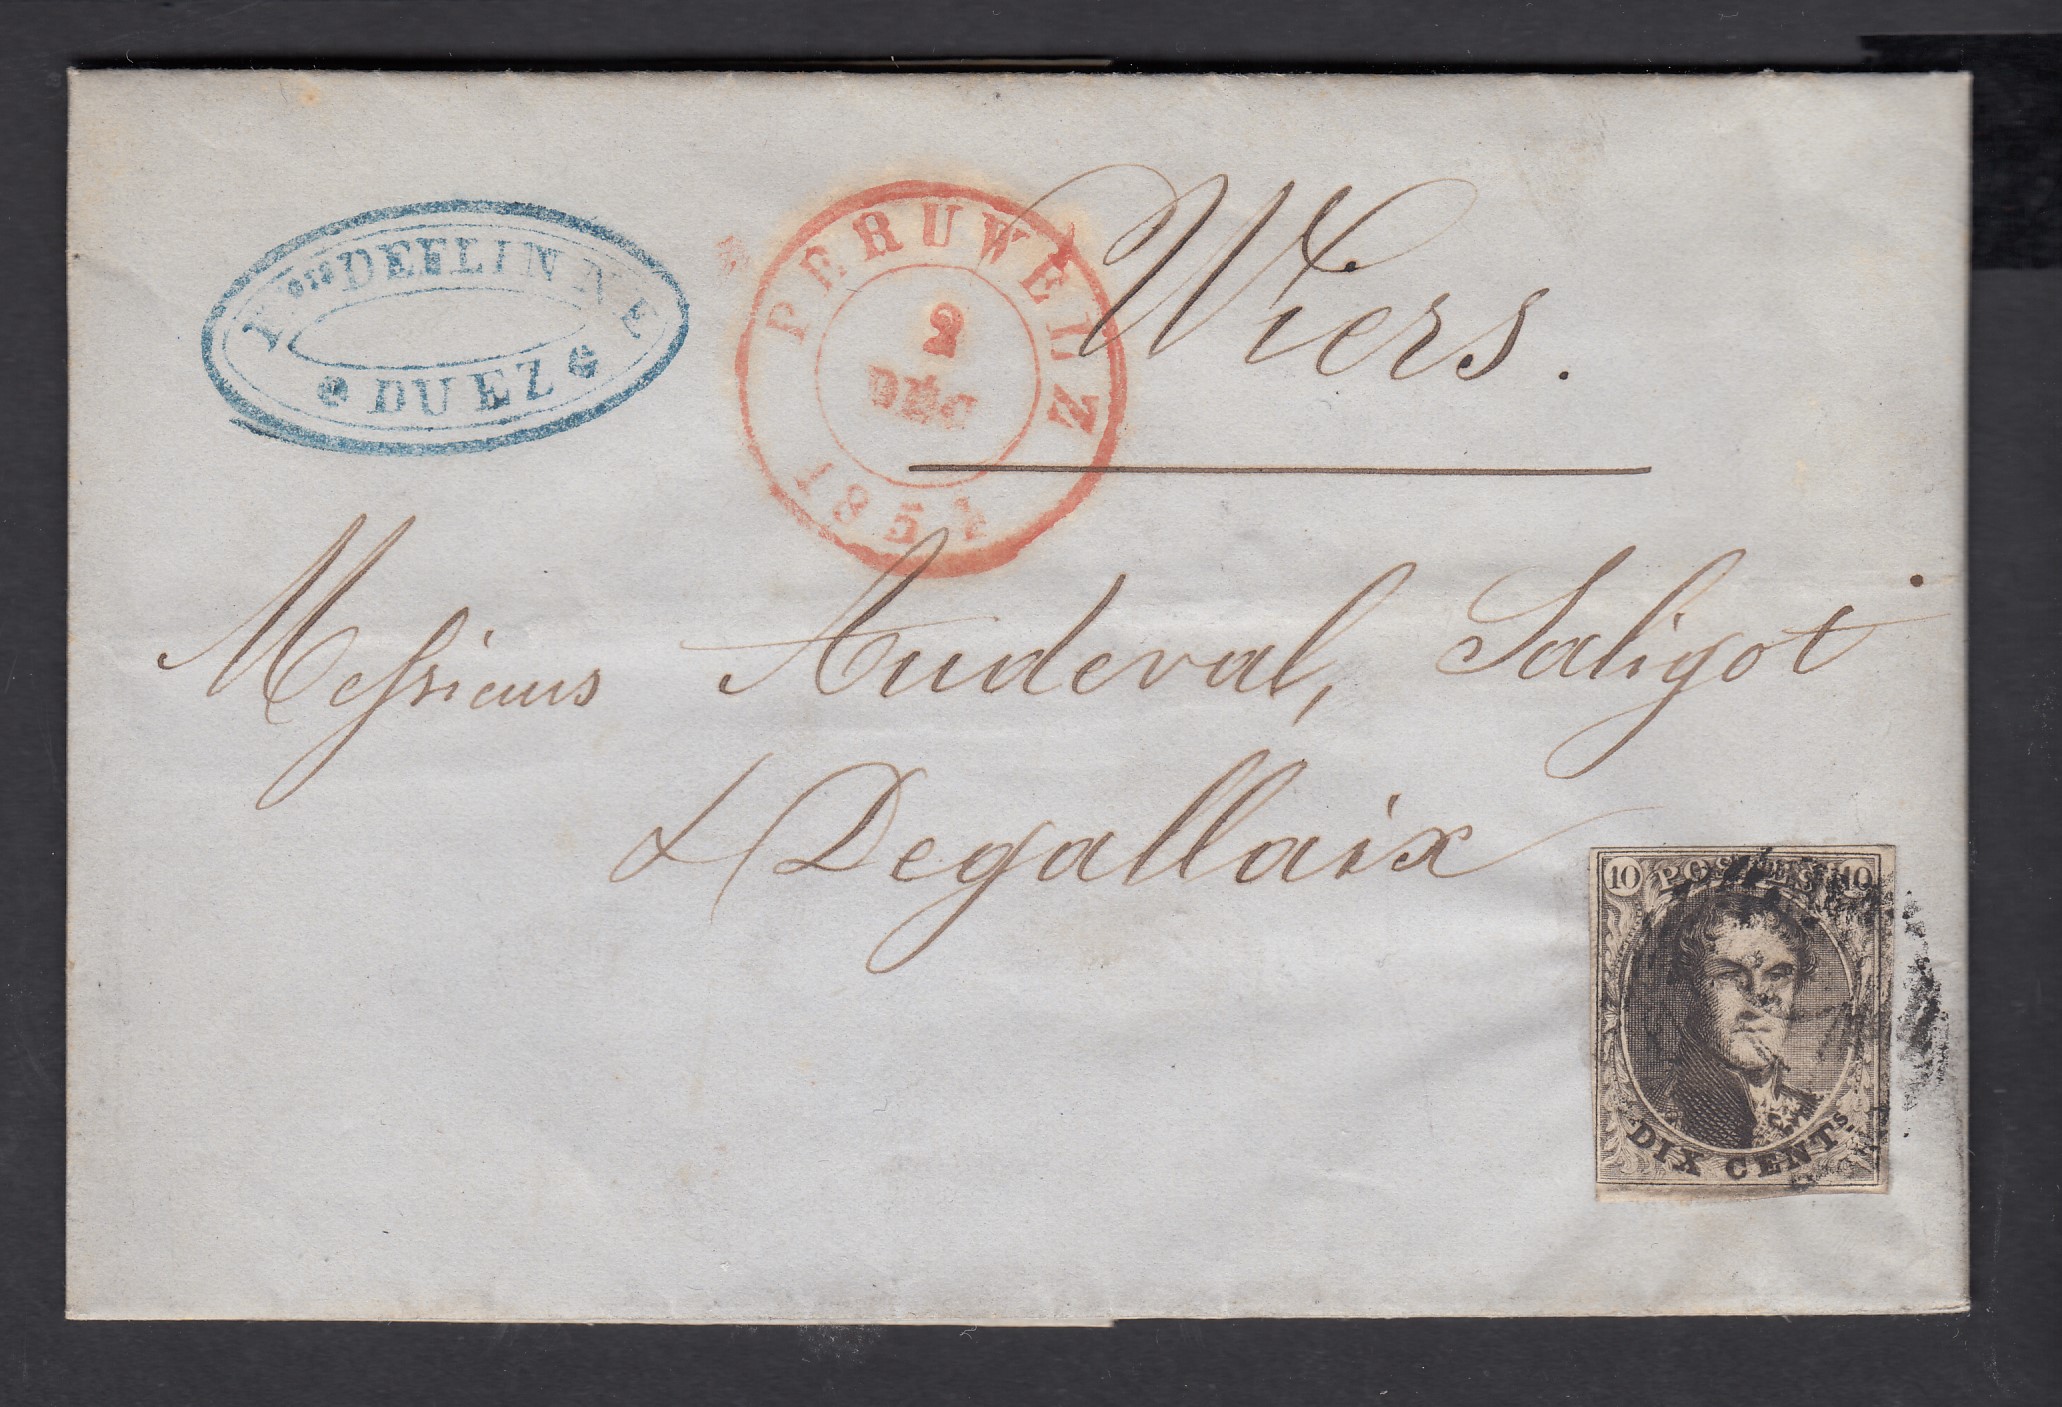 DUEZ
PERUWELZ
2
DEC
185
Wiers.
Messieurs Audeval, Saligot
& Degallaix
10 POSTES 10
DIX CENTS.